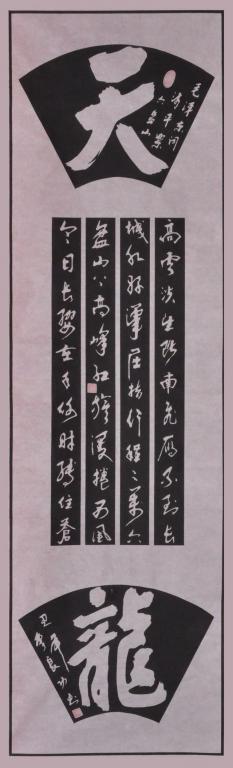 天
毛泽东詞
清平樂
六盘山
高雲淡望断南飛雁不到长
城非好漢屈指行程二萬六
盘山上高峰红旗漫捲西風
今日长缨在手何时缚住蒼
龍